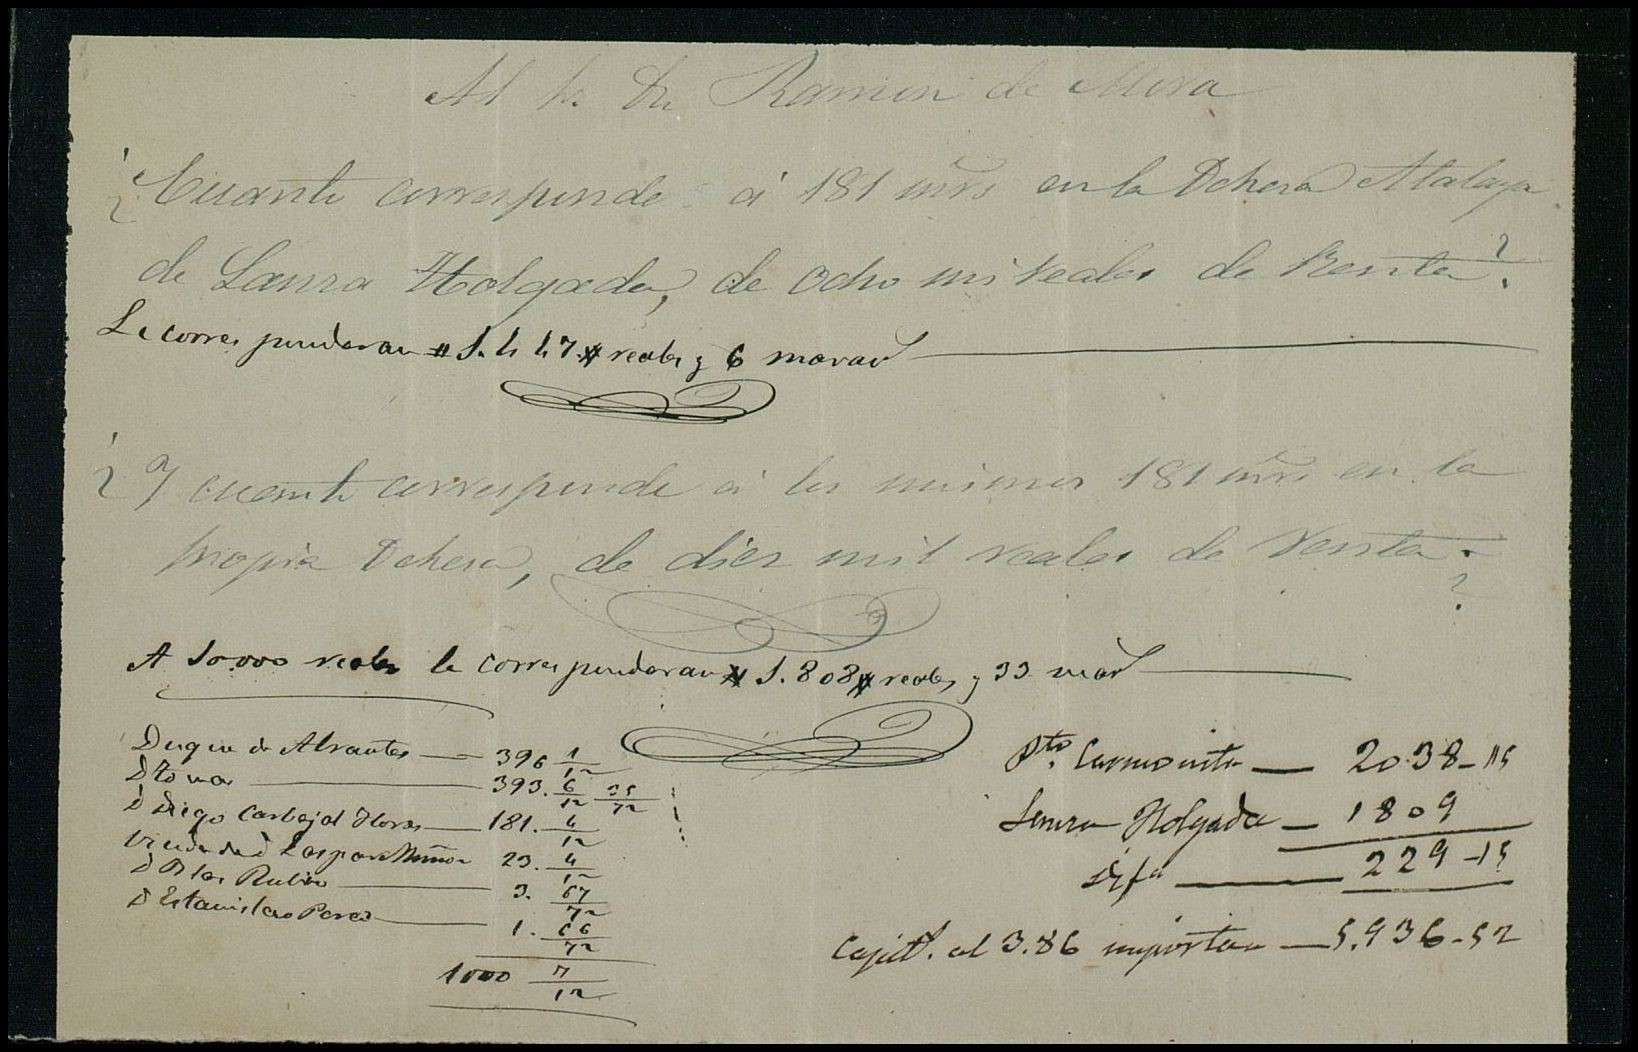 Al Sr. Dn Ramon de Mora
¿Cuanto corresponde á 181 mrs en la Dehesa Atalaya
de Laura Holgada, de ocho mil reales de Renta?
Le corresponderan # 1.447 # reales y 6 marav
¿Y cuanto corresponde á los mismos 181 mrs en la
propia Dehesa, de diez mil reales de Renta?
A 10.000 reales le corresponderan # 1.808 # reales y 33 mar
Duque de Abrantes — 396 1/12
D Tomas — 393. 6/12 35/72
D Diego Carbajal Flores — 181. 4/12
Viuda de D Gaspar Muñoz 23. 4/12
D Blas Rubio — 3. 67/72
D Estanislao Perez — 1. 66/72
1000 7/12
Pto. Carmonita — 2038-15
Laura Holgada — 1809
Difa — 229-15
Capitl. al 3.86 importan — 5.936-52